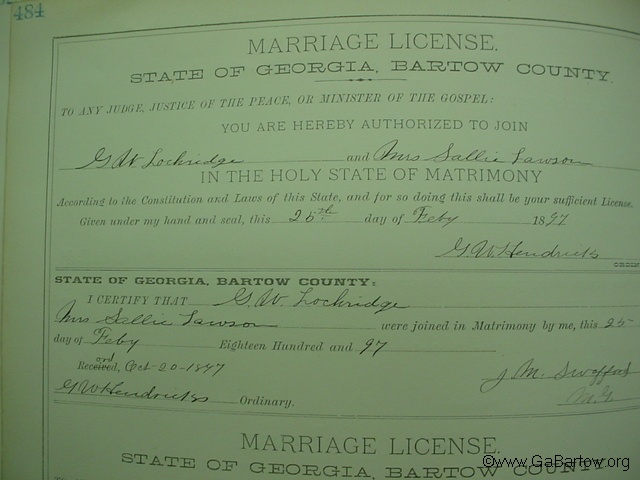 484
MARRIAGE LICENSE.
STATE OF GEORGIA, BARTOW COUNTY.
TO ANY JUDGE, JUSTICE OF THE PEACE, OR MINISTER OF THE GOSPEL:
YOU ARE HEREBY AUTHORIZED TO JOIN
G. W. Lockridge and Mrs Sallie Lawson
IN THE HOLY STATE OF MATRIMONY
According to the Constitution and Laws of this State, and for so doing this shall be your sufficient License.
Given under my hand and seal, this 25th day of Feby 1897
G W Hendricks
STATE OF GEORGIA, BARTOW COUNTY:
I CERTIFY THAT G. W. Lockridge
Mrs Sallie Lawson were joined in Matrimony by me, this 25
day of Feby Eighteen Hundred and 97
Received, Oct 20-1897
J M. Swafford
M. G.
G W Hendricks Ordinary.
MARRIAGE LICENSE.
STATE OF GEORGIA, BARTOW COUNTY.
©www.GaBartow.org